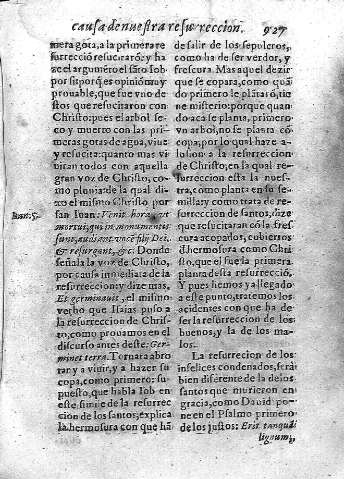 causa de nuestra resurreccion. 927
mera gota, a la primera re
surreccion resucitarõ: y ha
ze el argumẽto el sãto Iob
por si, porq̃ es opinion muy
prouable, que fue vno de
los que resucitaron con
Christo: pues el arbol se-
co y muerto con las pri-
meras gotas de agua, viue
y resucita: quanto mas vi-
uiran todos con aquella
gran voz de Christo, co-
mo pluuia: de la qual di-
xo el mismo Christo por
Ioan. 5. san Iuan: Venit hora, vt
mortui, qui in monumentis
sunt, audiant vocẽ filij Dei,
& resurgant, &c. Donde
señala la voz de Christo,
por causa inmediata de la
resurreccion: y dize mas,
Et germinauit, el mismo
verbo que Isaias puso a
la resurreccion de Chris-
to, como prouamos en el
discurso antes deste: Ger-
minet terra. Tornara a bro
rar y a viuir, y a hazer su
copa, como primero: su-
puesto, que habla Iob en
este simile de la resurrec
cion de los santos; explica
la hermosura con que hã
de salir de los sepulcros,
como ha de ser verdor, y
frescura. Mas aquel dezir
que se copara, como quã
do primero le plãtarõ, tie
ne misterio: porque quan-
do aca se planta, primero
vn arbol, no se planta cõ
copa, por lo qual haze a-
lusion a la resurreccion
de Christo, en la qual re-
surreccion esta la nues-
tra, como planta en su se-
milla: y como trata de re-
surreccion de santos, dize
que resucitaran cõ la fres-
cura acopados, cubiertos
d̃ hermosura como Chris-
to, que el fue la primera
planta desta resurrecciõ.
Y pues hemos ya llegado
a este punto, tratemos los
accidentes con que ha de
ser la resurreccion de los
buenos, y la de los ma-
los.
La resurrecion de los
infelices condenados, serà
bien diferente de la de los
santos que murieron en
gracia, como Dauid po-
ne en el Psalmo primero
de los justos: Erit tanquã
lignum,